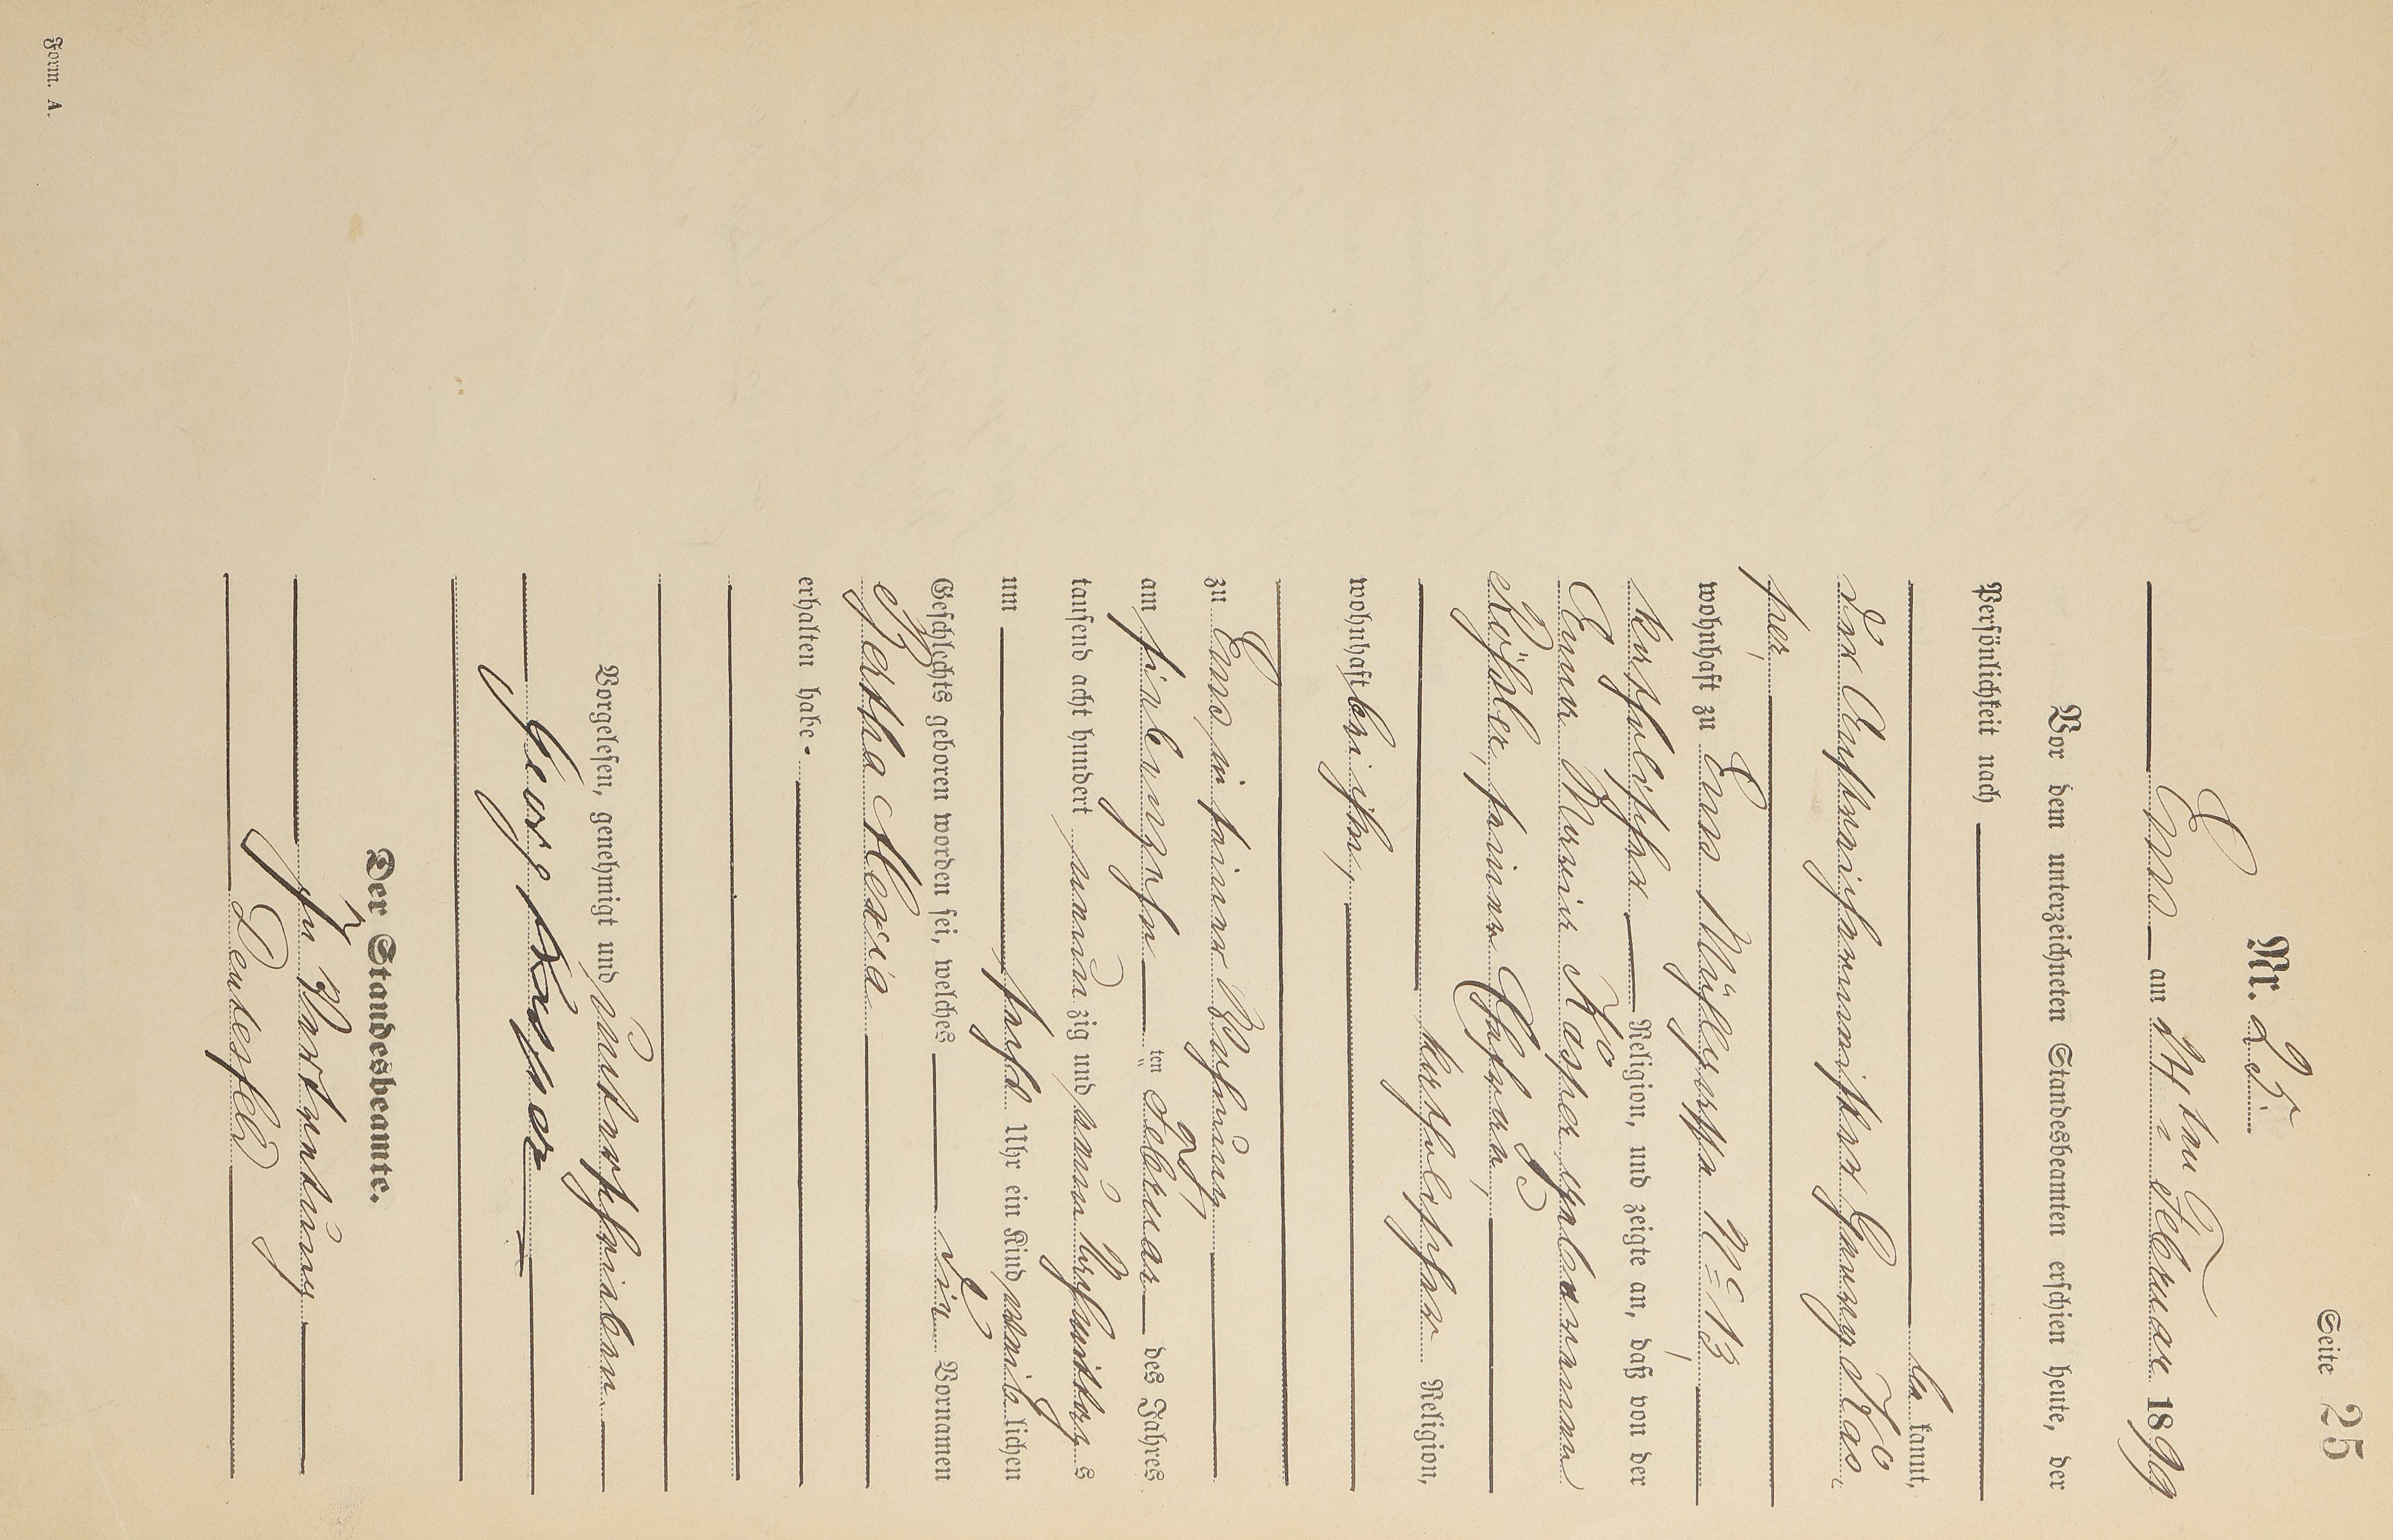 Seite 25
Nr. 25.
Ems am 24ten Februar 1899
Vor dem unterzeichneten Standesbeamten erschien heute, der
Persönlichkeit nach
bekannt,
der Anstreichermeister Georg Kas-
per,
wohnhaft zu Ems
katholischer Religion, und zeigte an, daß von der
Emma Maria Kasper geborenen
Rößler, seiner Ehefrau,
katholischer Religion,
wohnhaft bei ihm,
zu Ems in seiner Wohnung
am siebenzehnten Februar des Jahres
tausend acht hundert neunzig und neun Nachmittags
um halb Uhr ein Kind weiblichen
Geschlechts geboren worden sei, welches die Vornamen
Hertha Alexia
erhalten habe.
Vorgelesen, genehmigt und unterschrieben
Georg Kasper
Der Standesbeamte.
In Vertretung
Deutesfeld
Form. A.